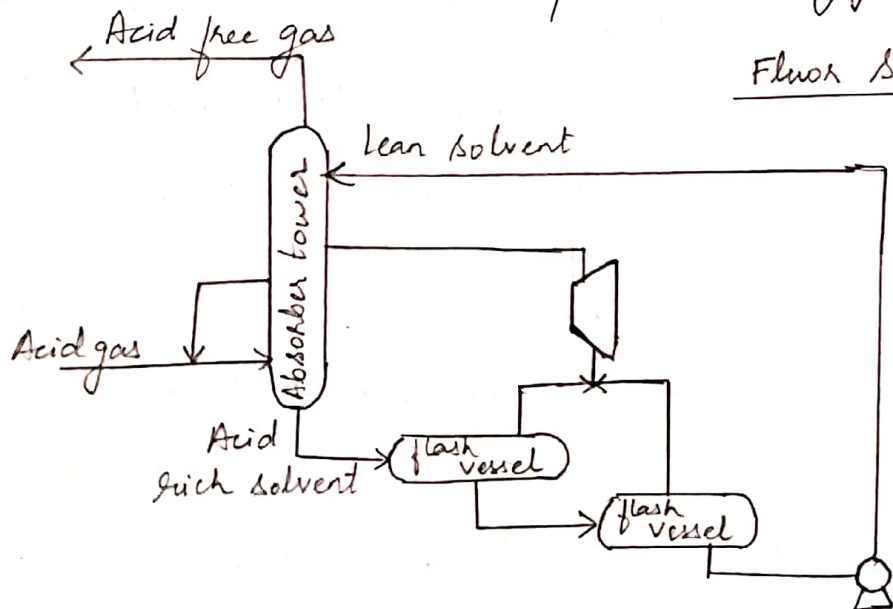 Acid free gas
Fluor S
Lean solvent
Absorber tower
Acid gas
Acid
rich solvent
flash
vessel
flash
vessel